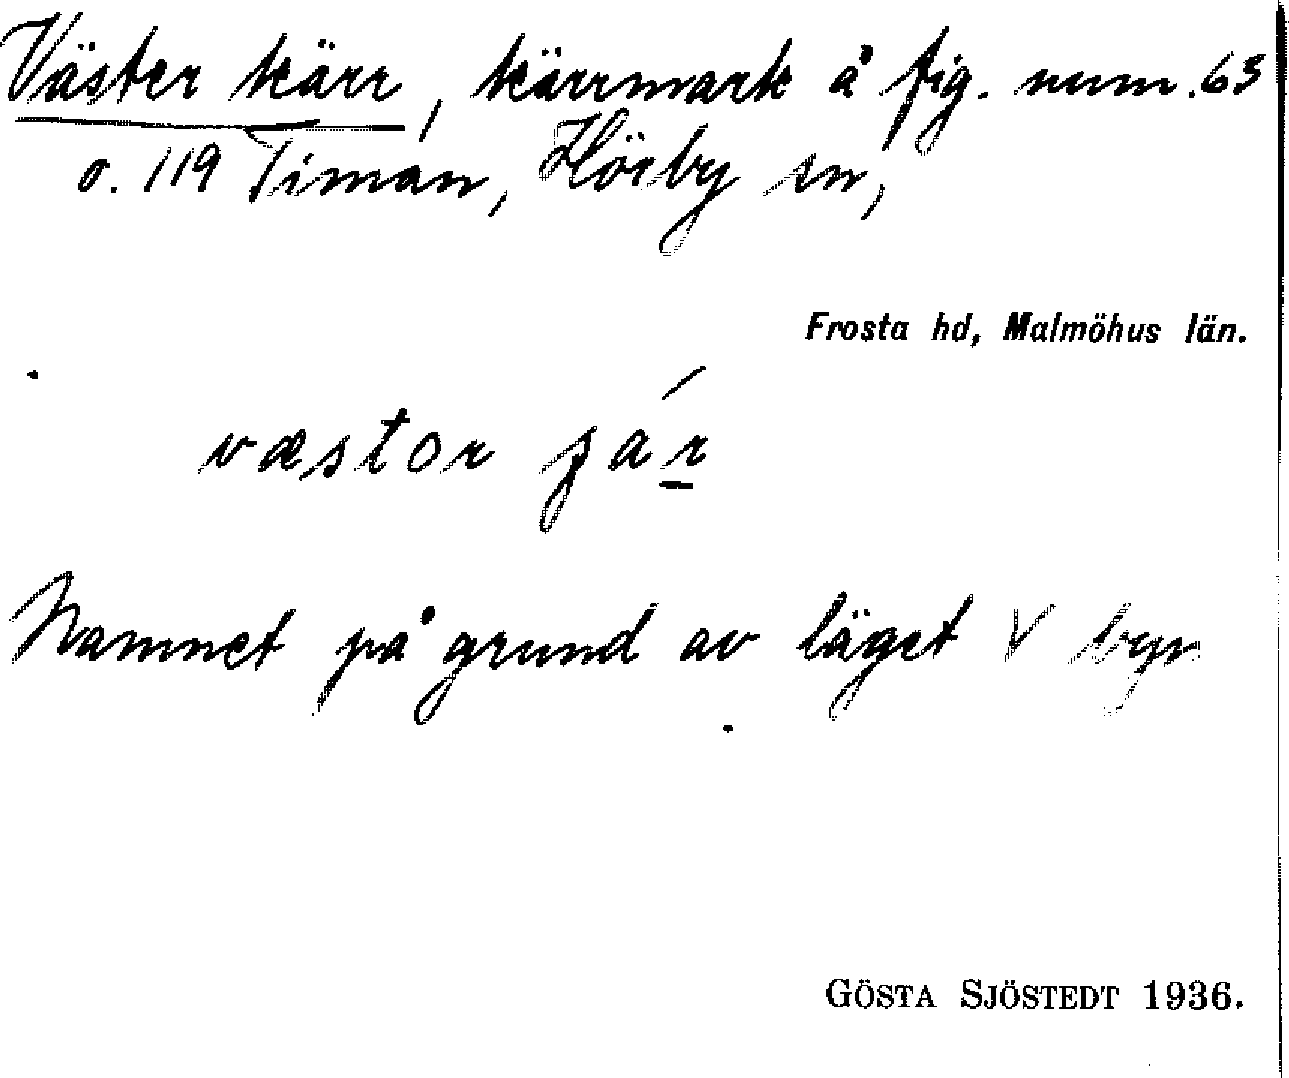 Väster kärr, kärrmark å fig. num. 63
o. 119 Timan, Hörby sn,
Frosta hd, Malmöhus län.
væstor
Namnet på grund av läget V byn
GÖSTA SJÖSTEDT 1936.